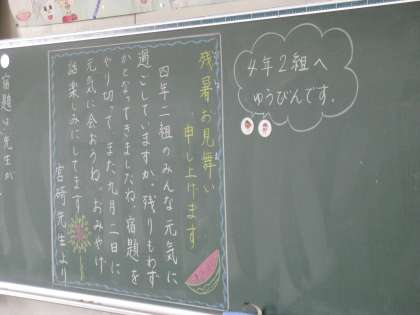 4年2組へ
ゆうびんです。
残暑お見舞い
申し上げます
四年二組のみんな元気に
過ごしていますか。残りもわず
かとなってきましたね。宿題を
やり切って、また九月二日に
元気に会おうね。おみやげ
話楽しみにしてます。
宮崎先生より
宿題は、先生が